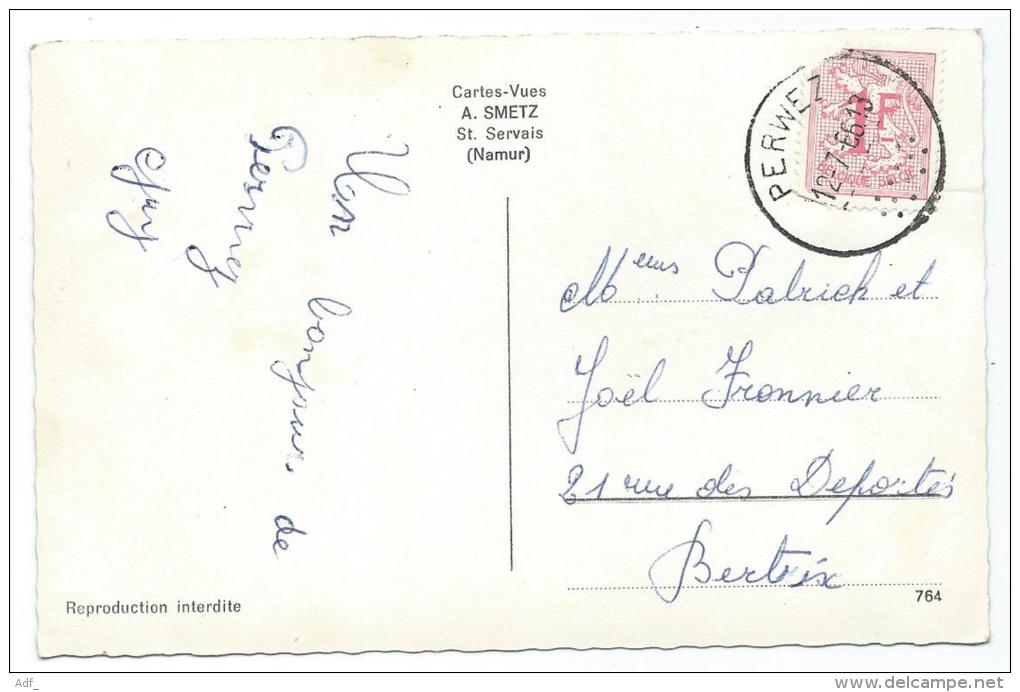 Cartes-Vues
A. SMETZ
St. Servais
(Namur)
Un
bonjour de
Perwez
Guy
PERWEZ
12-7-66 13
1F
BELGIQUE BELGIE
Meurs Patrick et
Joël Fronnier
21 rue des Deportés
Bertrix
Reproduction interdite
764
Adf_
delcampe.net